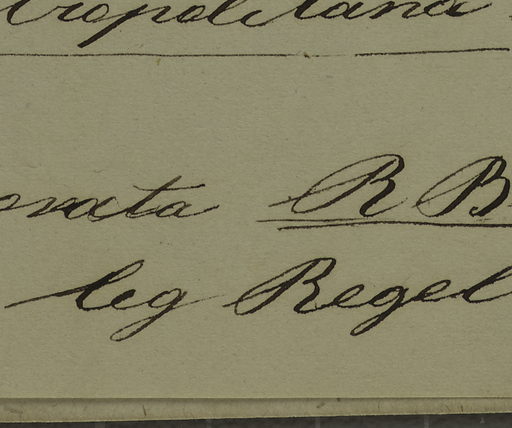 tropolitana
ovata R B
leg Regel